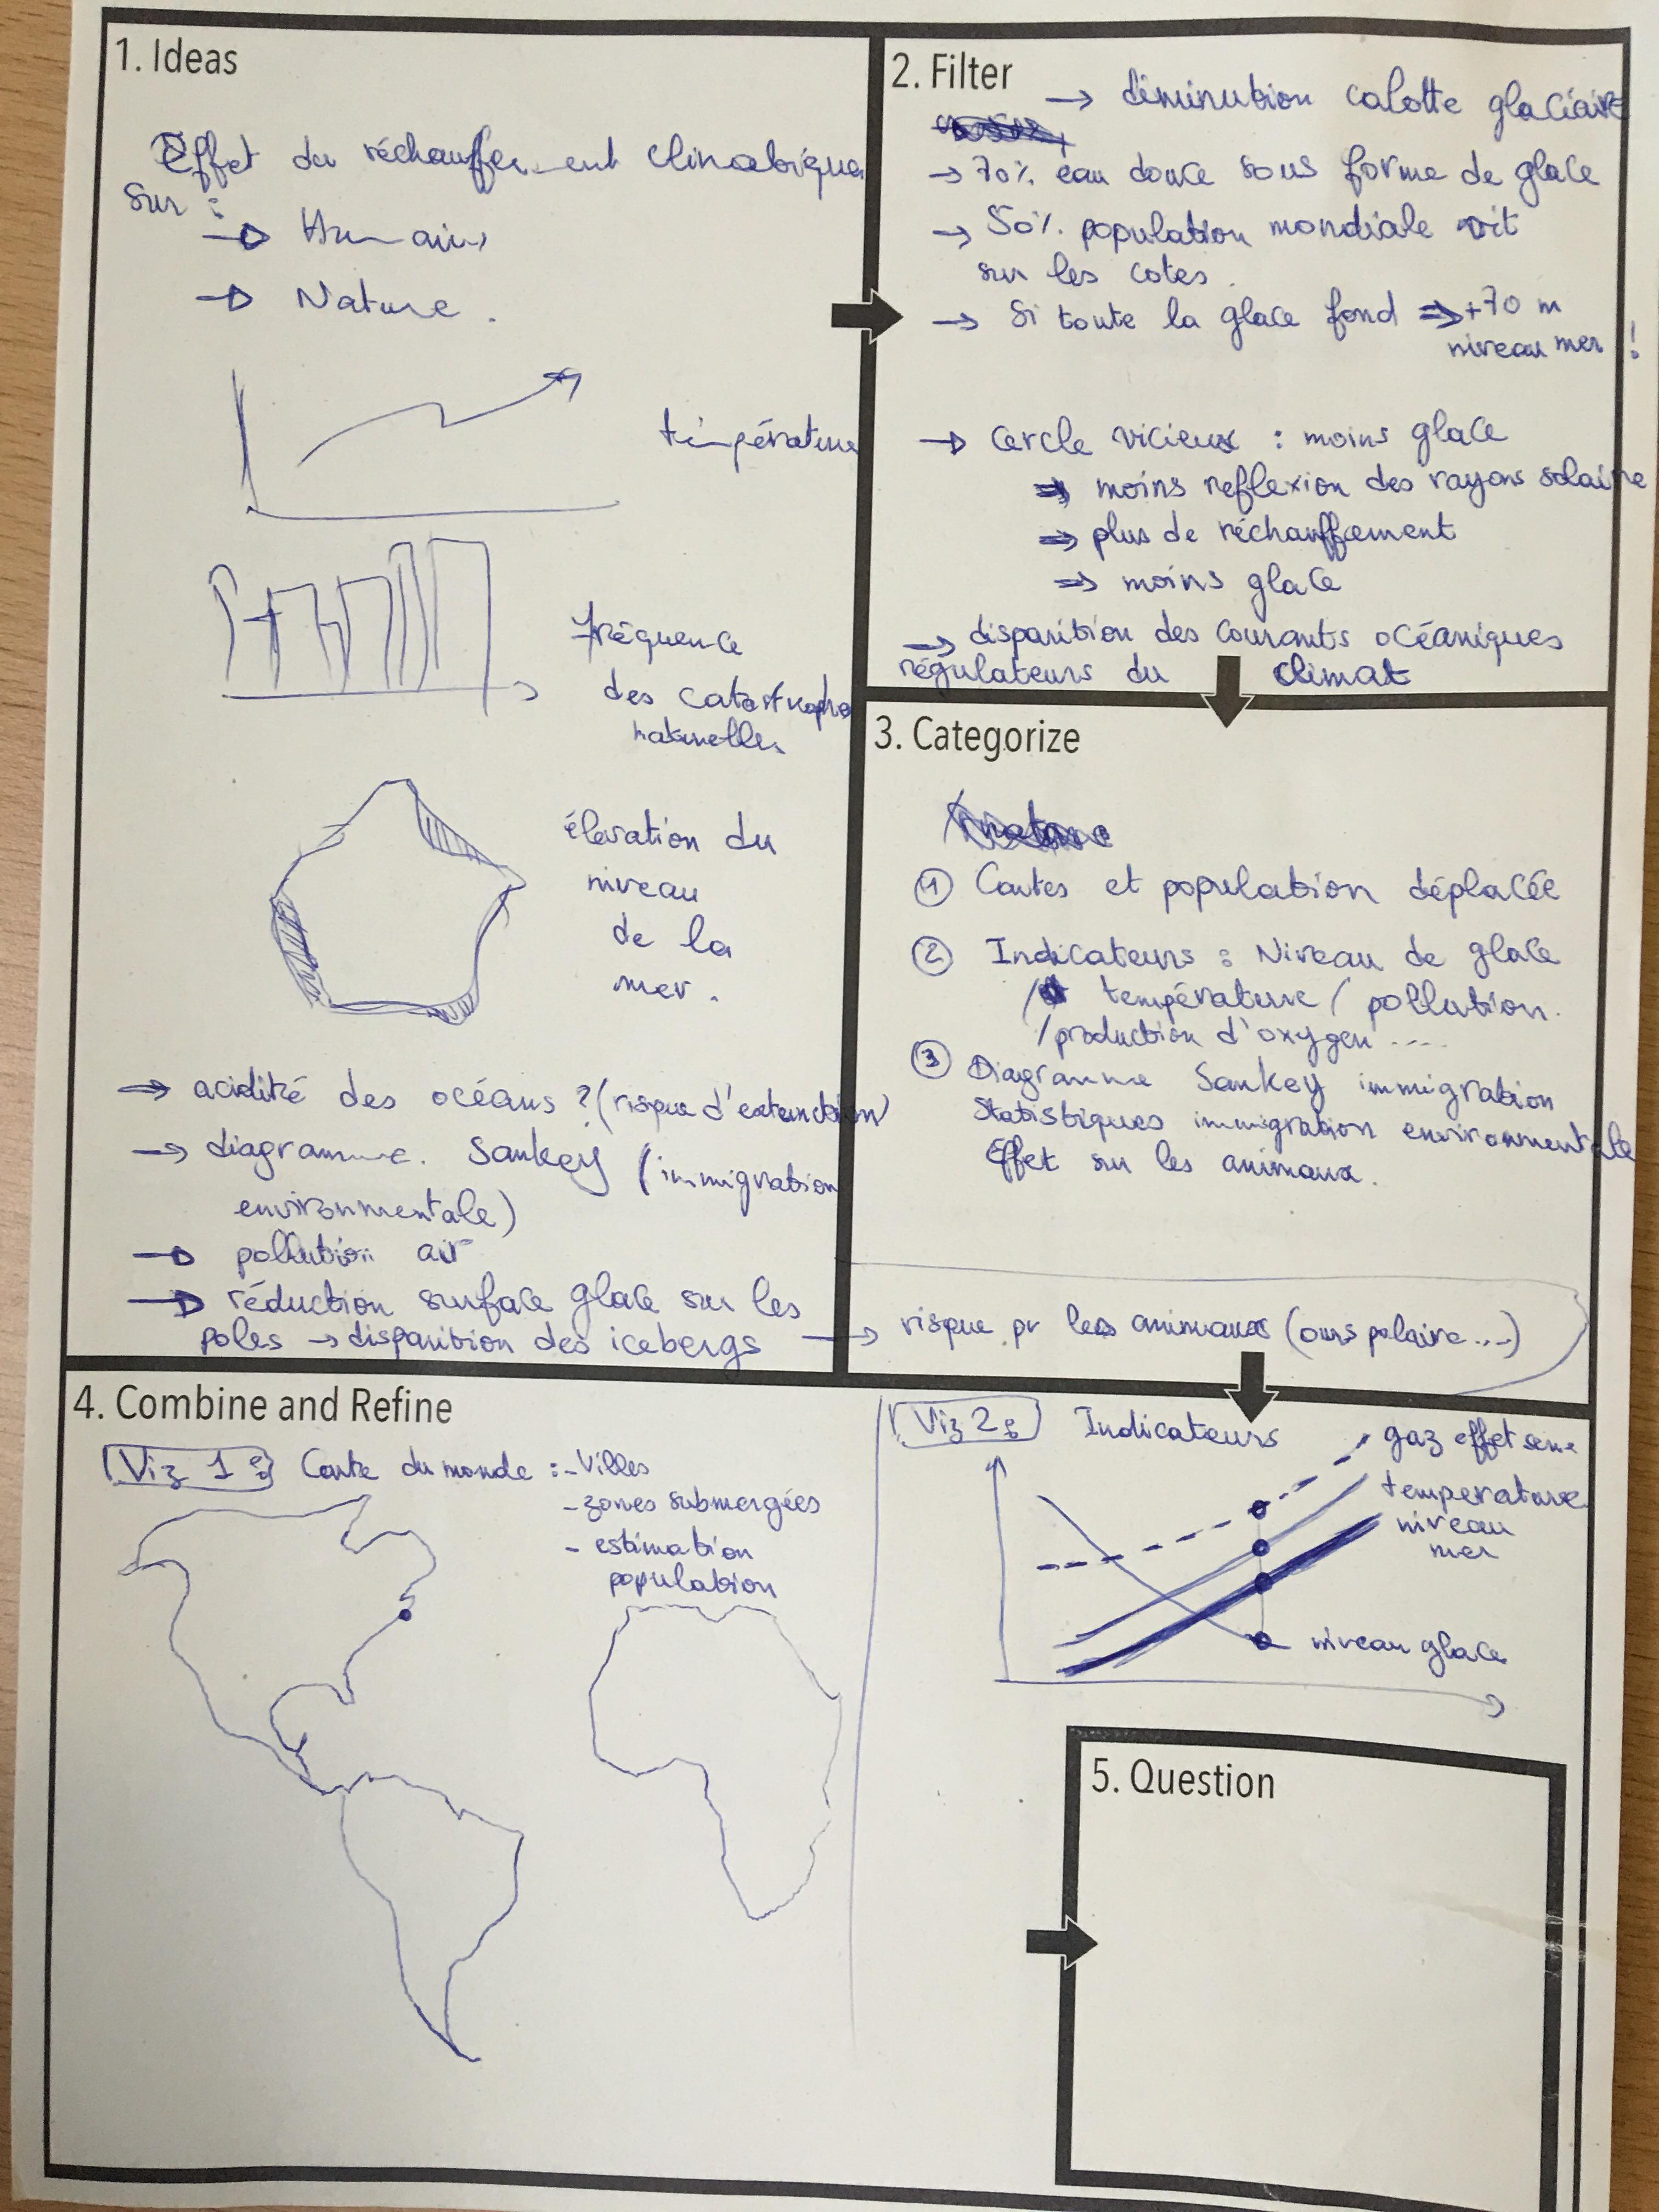 1. Ideas
Effet du réchauffement climatique
sur :
→ Humains
→ Nature.
température
fréquence
des catastrophes
naturelles
élevation du
niveau
de la
mer.
→ acidité des océans ? (risque d'extinction)
→ diagramme Sankey (immigration
environnementale)
→ pollution air
→ réduction surface glace sur les
poles → disparition des icebergs → risque pr les animaux (ours polaire...)
2. Filter
→ diminution calotte glaciaire
→ 70% eau douce sous forme de glace
→ 50% population mondiale vit
sur les cotes.
→ Si toute la glace fond ⇒ +70 m
niveau mer !
→ cercle vicieux : moins glace
⇒ moins reflexion des rayons solaire
⇒ plus de réchauffement
⇒ moins glace
→ disparition des courants océaniques
régulateurs du climat
3. Categorize
① Cartes et population déplacée
② Indicateurs : Niveau de glace
/ température / pollution.
/ production d'oxygen ....
③ Diagramme Sankey immigration
Statistiques immigration environmentale
Effet sur les animaux.
4. Combine and Refine
Viz 1 : Carte du monde : - Villes
- zones submergées
- estimation
population
Viz 2 : Indicateurs
gaz effet serre
temperature
niveau
mer
niveau glace
5. Question